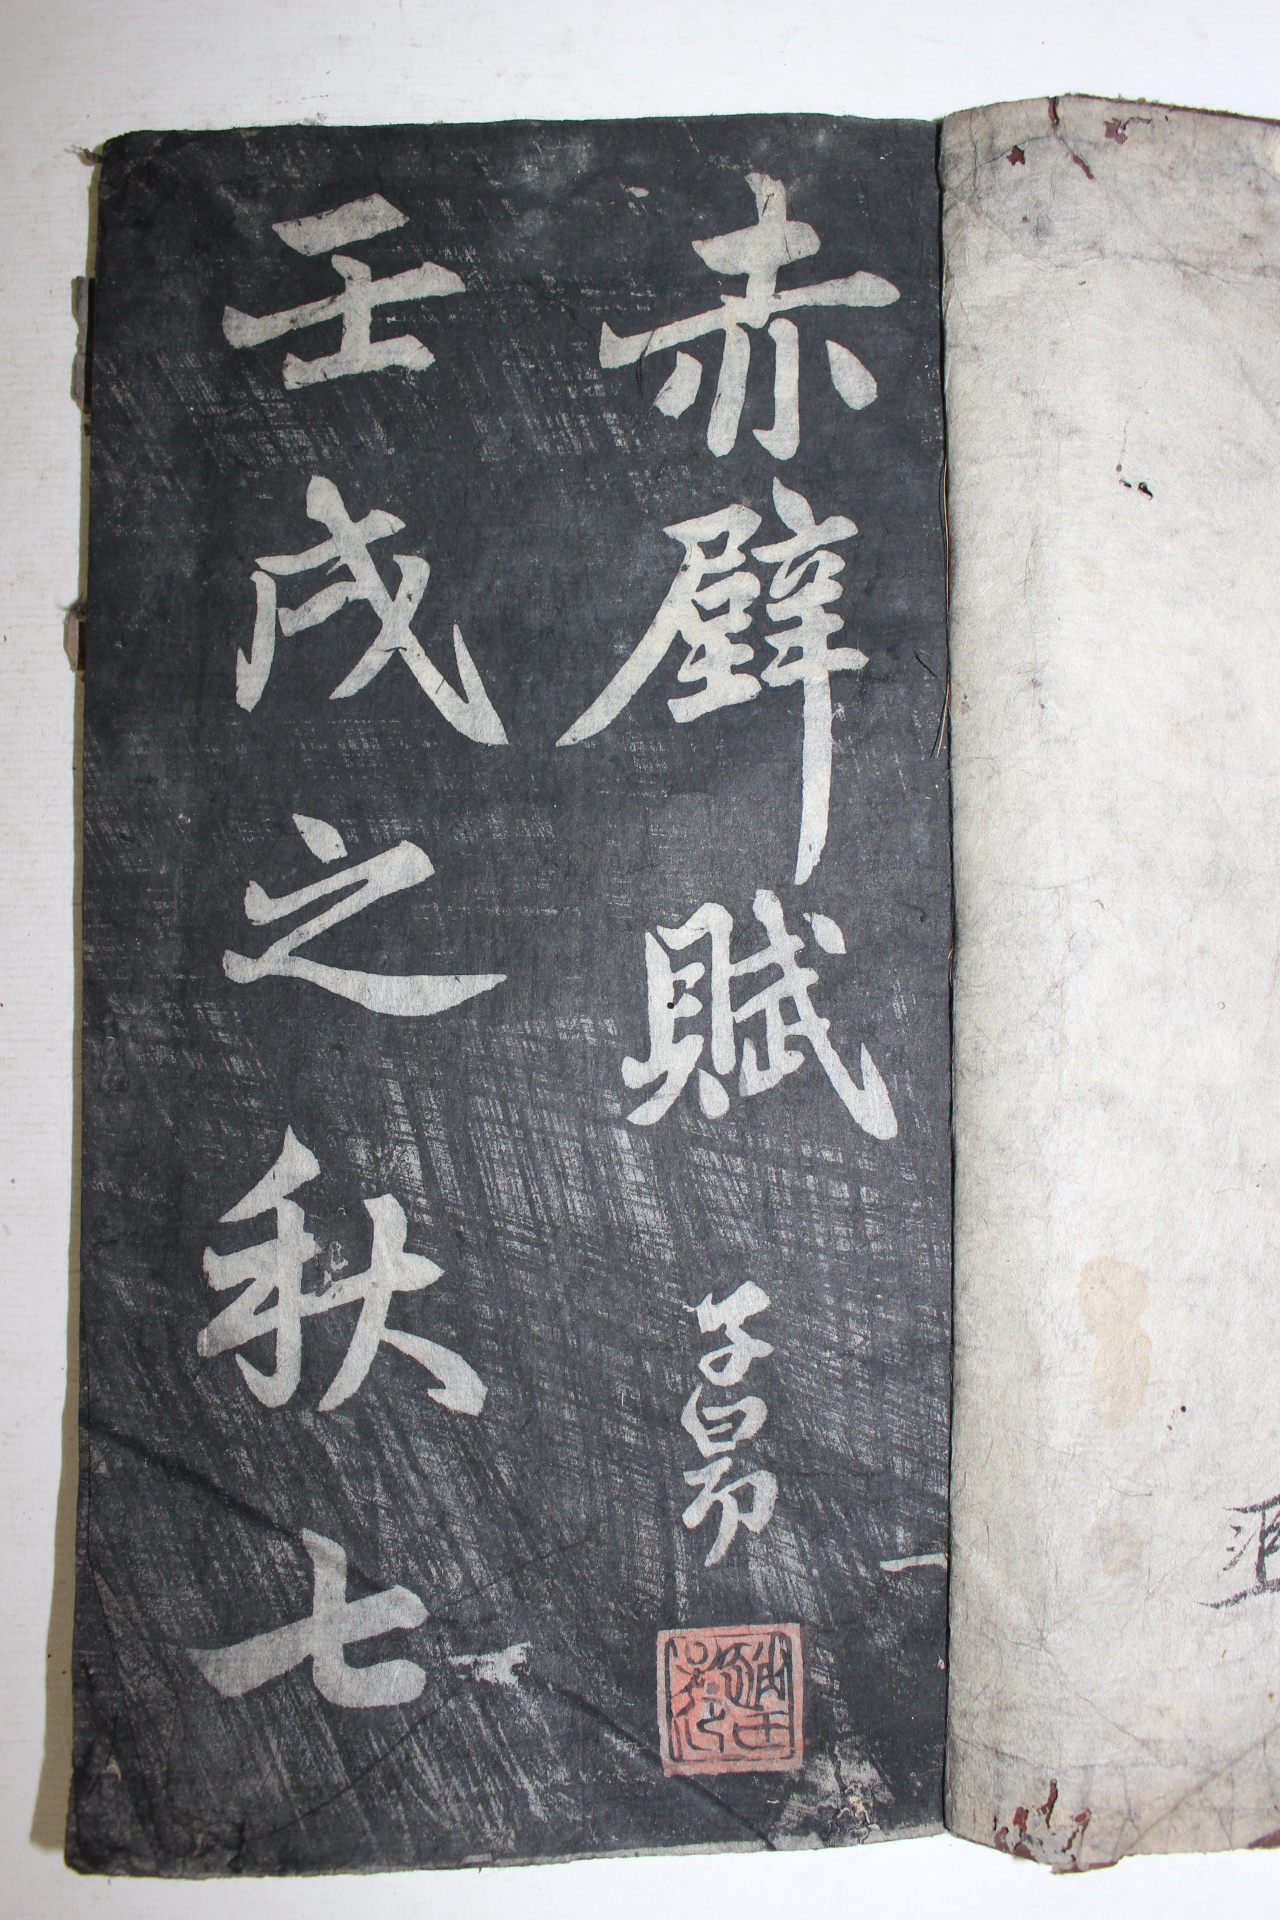 赤壁賦 子昂
壬戌之秋七